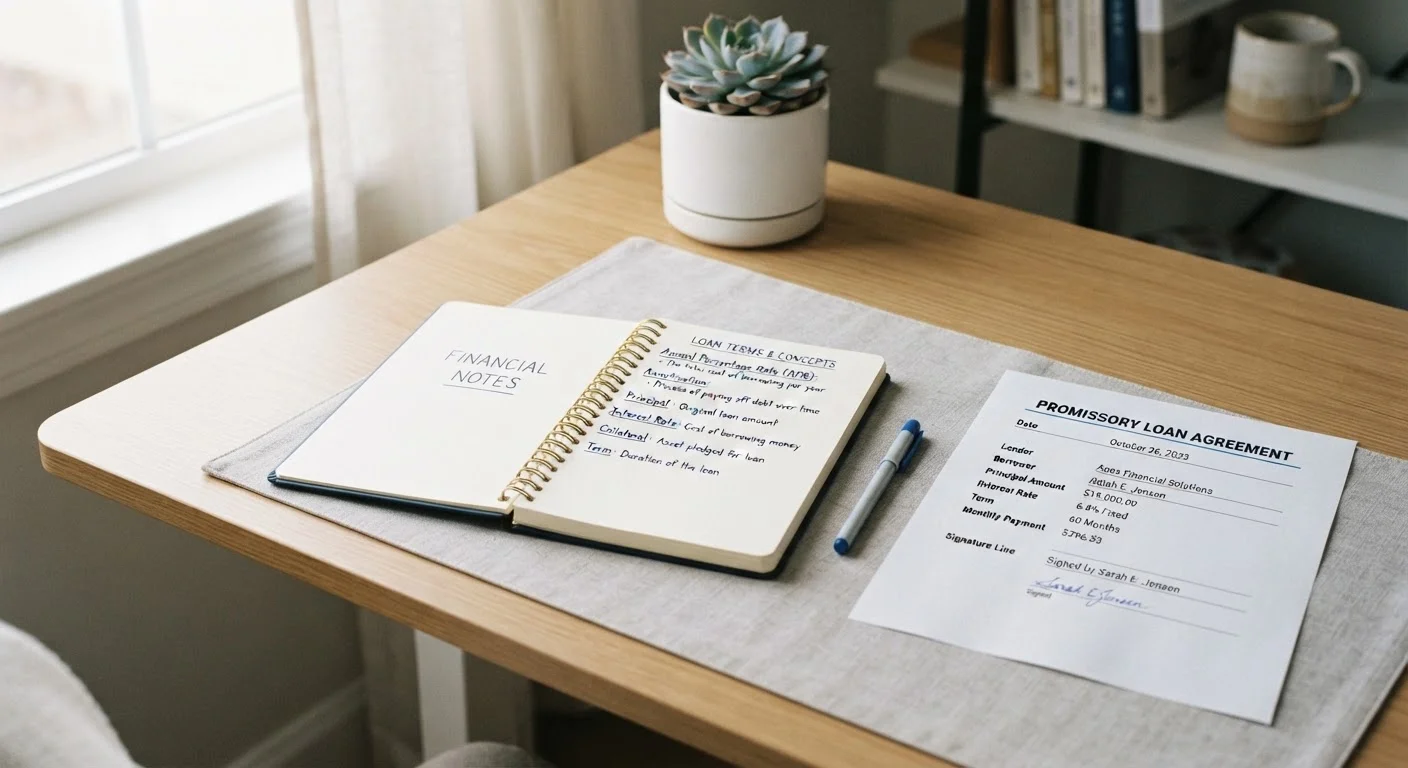 FINANCIAL
NOTES
LOAN TERMS & CONCEPTS
Annual Percentage Rate (APR):
• The total cost of borrowing per year
Amortization:
• Process of paying off debt over time
Principal: Original loan amount
Interest Rate: Cost of borrowing money
Collateral: Asset pledged for loan
Term: Duration of the loan
PROMISSORY LOAN AGREEMENT
Date October 26, 2023
Lender Financial Solutions
Borrower E. Jenson
Principal Amount
Interest Rate Fixed
Term 60 Months
Monthly Payment
Signature Line
Signed by Sarah E. Jenson
Sarah E Jensen